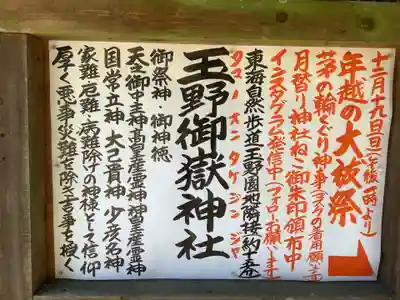 十二月十九日㊐(午後一時より)
年越の大祓祭
茅の輪くぐり神事(マスクの着用願います)
月替り神社ねこ御朱印頒布中
インスタグラム発信中(フォローお願いします)
東海自然歩道玉野園地隣接約十五番
タマノオンタケジンジャ
玉野御嶽神社
御祭神・御神徳
天之御中主神 高皇産霊神 神皇産霊神
国常立神 大己貴神 少彦名神
家難厄難・病難除けの神様として信仰
厚く悪事災難を除き吉事を授く